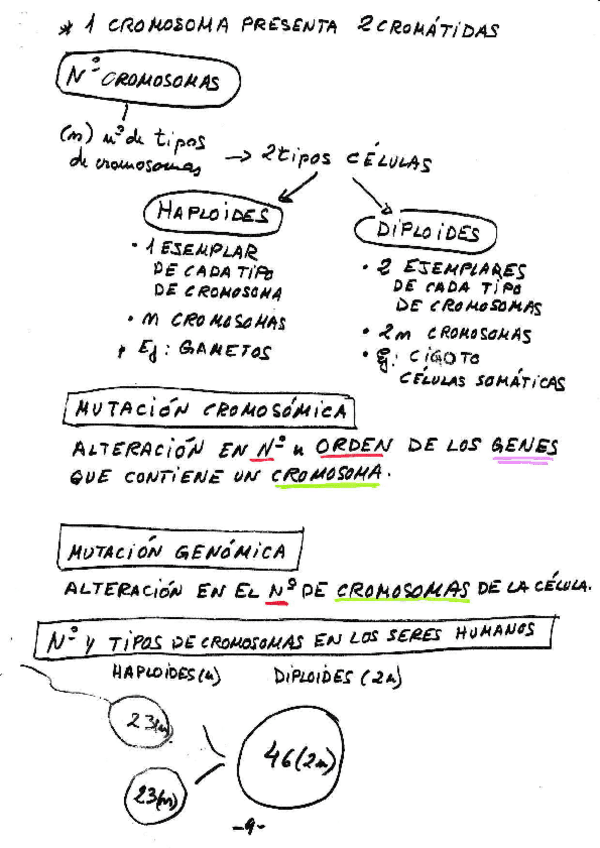 * 1 CROMOSOMA PRESENTA 2 CROMÁTIDAS
Nº CROMOSOMAS
(n) nº de tipos
de cromosomas → 2 tipos CÉLULAS
HAPLOIDES
• 1 EJEMPLAR
DE CADA TIPO
DE CROMOSOMA
• n CROMOSOMAS
• Ej: GAMETOS
DIPLOIDES
• 2 EJEMPLARES
DE CADA TIPO
DE CROMOSOMAS
• 2n CROMOSOMAS
• Ej: CIGOTO
CÉLULAS SOMÁTICAS
MUTACIÓN CROMOSÓMICA
ALTERACIÓN EN Nº u ORDEN DE LOS GENES
QUE CONTIENE UN CROMOSOMA.
MUTACIÓN GENÓMICA
ALTERACIÓN EN EL Nº DE CROMOSOMAS DE LA CÉLULA.
Nº Y TIPOS DE CROMOSOMAS EN LOS SERES HUMANOS
HAPLOIDES (n) DIPLOIDES (2n)
23(n)
46(2n)
23(n)
-9-